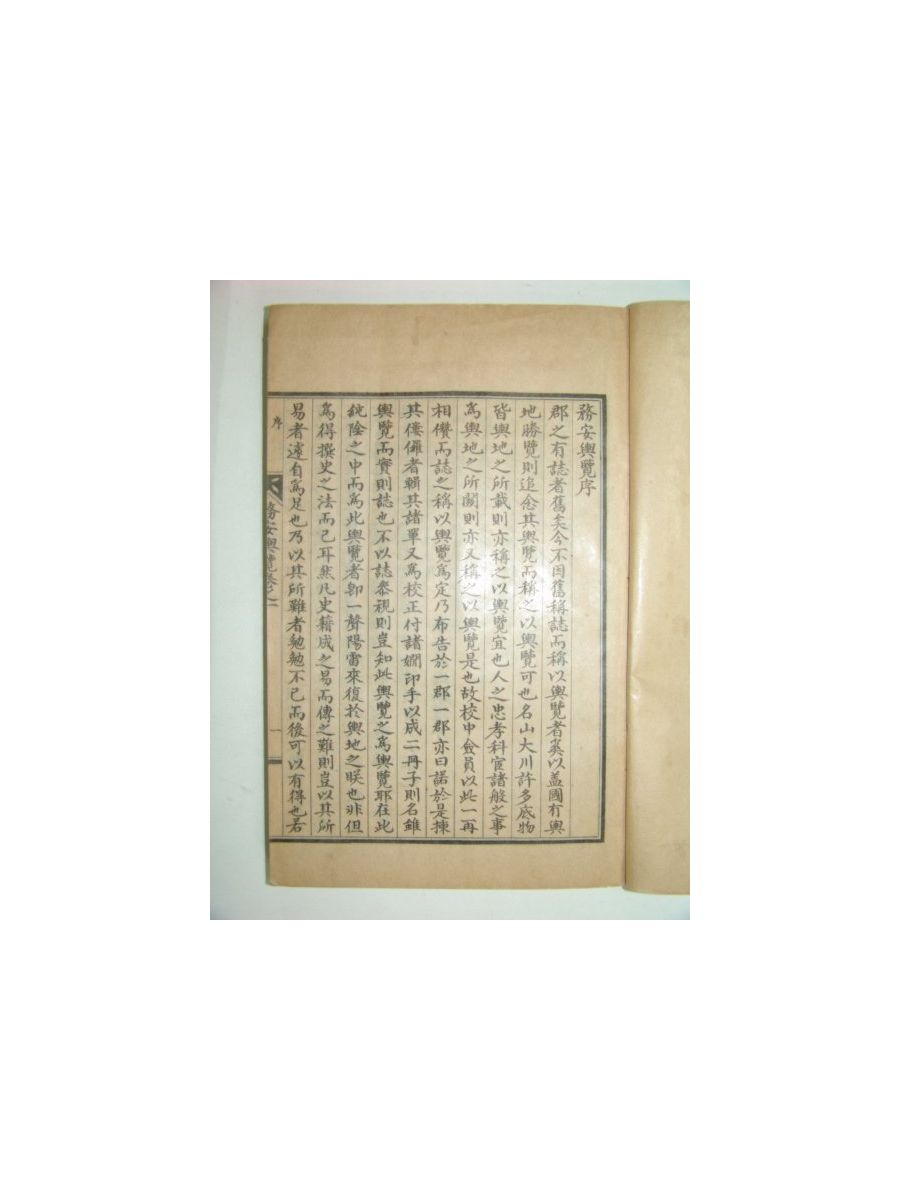 務安輿覽序
郡之有誌者舊矣今不因舊稱誌而稱以輿覽者奚以盖國有輿
地勝覽則追念其輿覽而稱之以輿覽可也名山大川許多底物
皆輿地之所載則亦稱之以輿覽宜也人之忠孝科宦諸般之事
爲輿地之所關則亦又稱之以輿覽是也故校中僉員以此一再
相儹而誌之稱以輿覽爲定乃布告於一郡一郡亦曰諾於是揀
其僂儸者輯其諸單又爲校正付諸嫺印手以成二冊子則名雖
輿覽而實則誌也不以誌叅視則豈知此輿覽之爲輿覽耶在此
純陰之中而爲此輿覽者卽一聲陽雷來復於輿地之睽也非但
爲得撰史之法而已耳然凡史籍成之易而傳之難則豈以其所
易者遽自爲足也乃以其所難者勉勉不已而後可以有得也若
序
務安輿覽卷之一
一